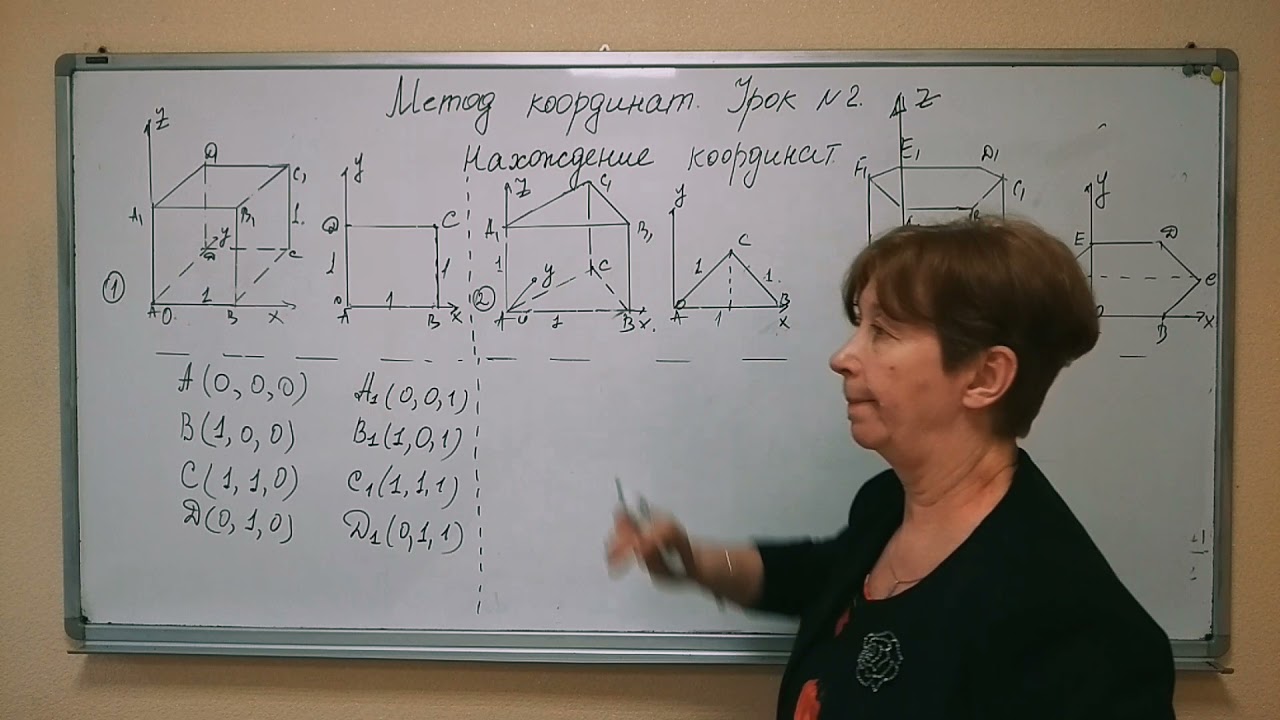 Метод координат. Урок №2.
Нахождение координат
①
Z
A₁
B₁
C₁
1
y
A
O
1
B
C
X
y
C
1
1
1
A
B
X
②
Z
A₁
C₁
B₁
1
y
C
A
1
B
X
y
C
1
1
A
1
B
X
Z
F₁
E₁
D₁
C₁
y
E
D
C
B
X
A(0,0,0)
A₁(0,0,1)
B(1,0,0)
B₁(1,0,1)
C(1,1,0)
C₁(1,1,1)
Д(0,1,0)
Д₁(0,1,1)